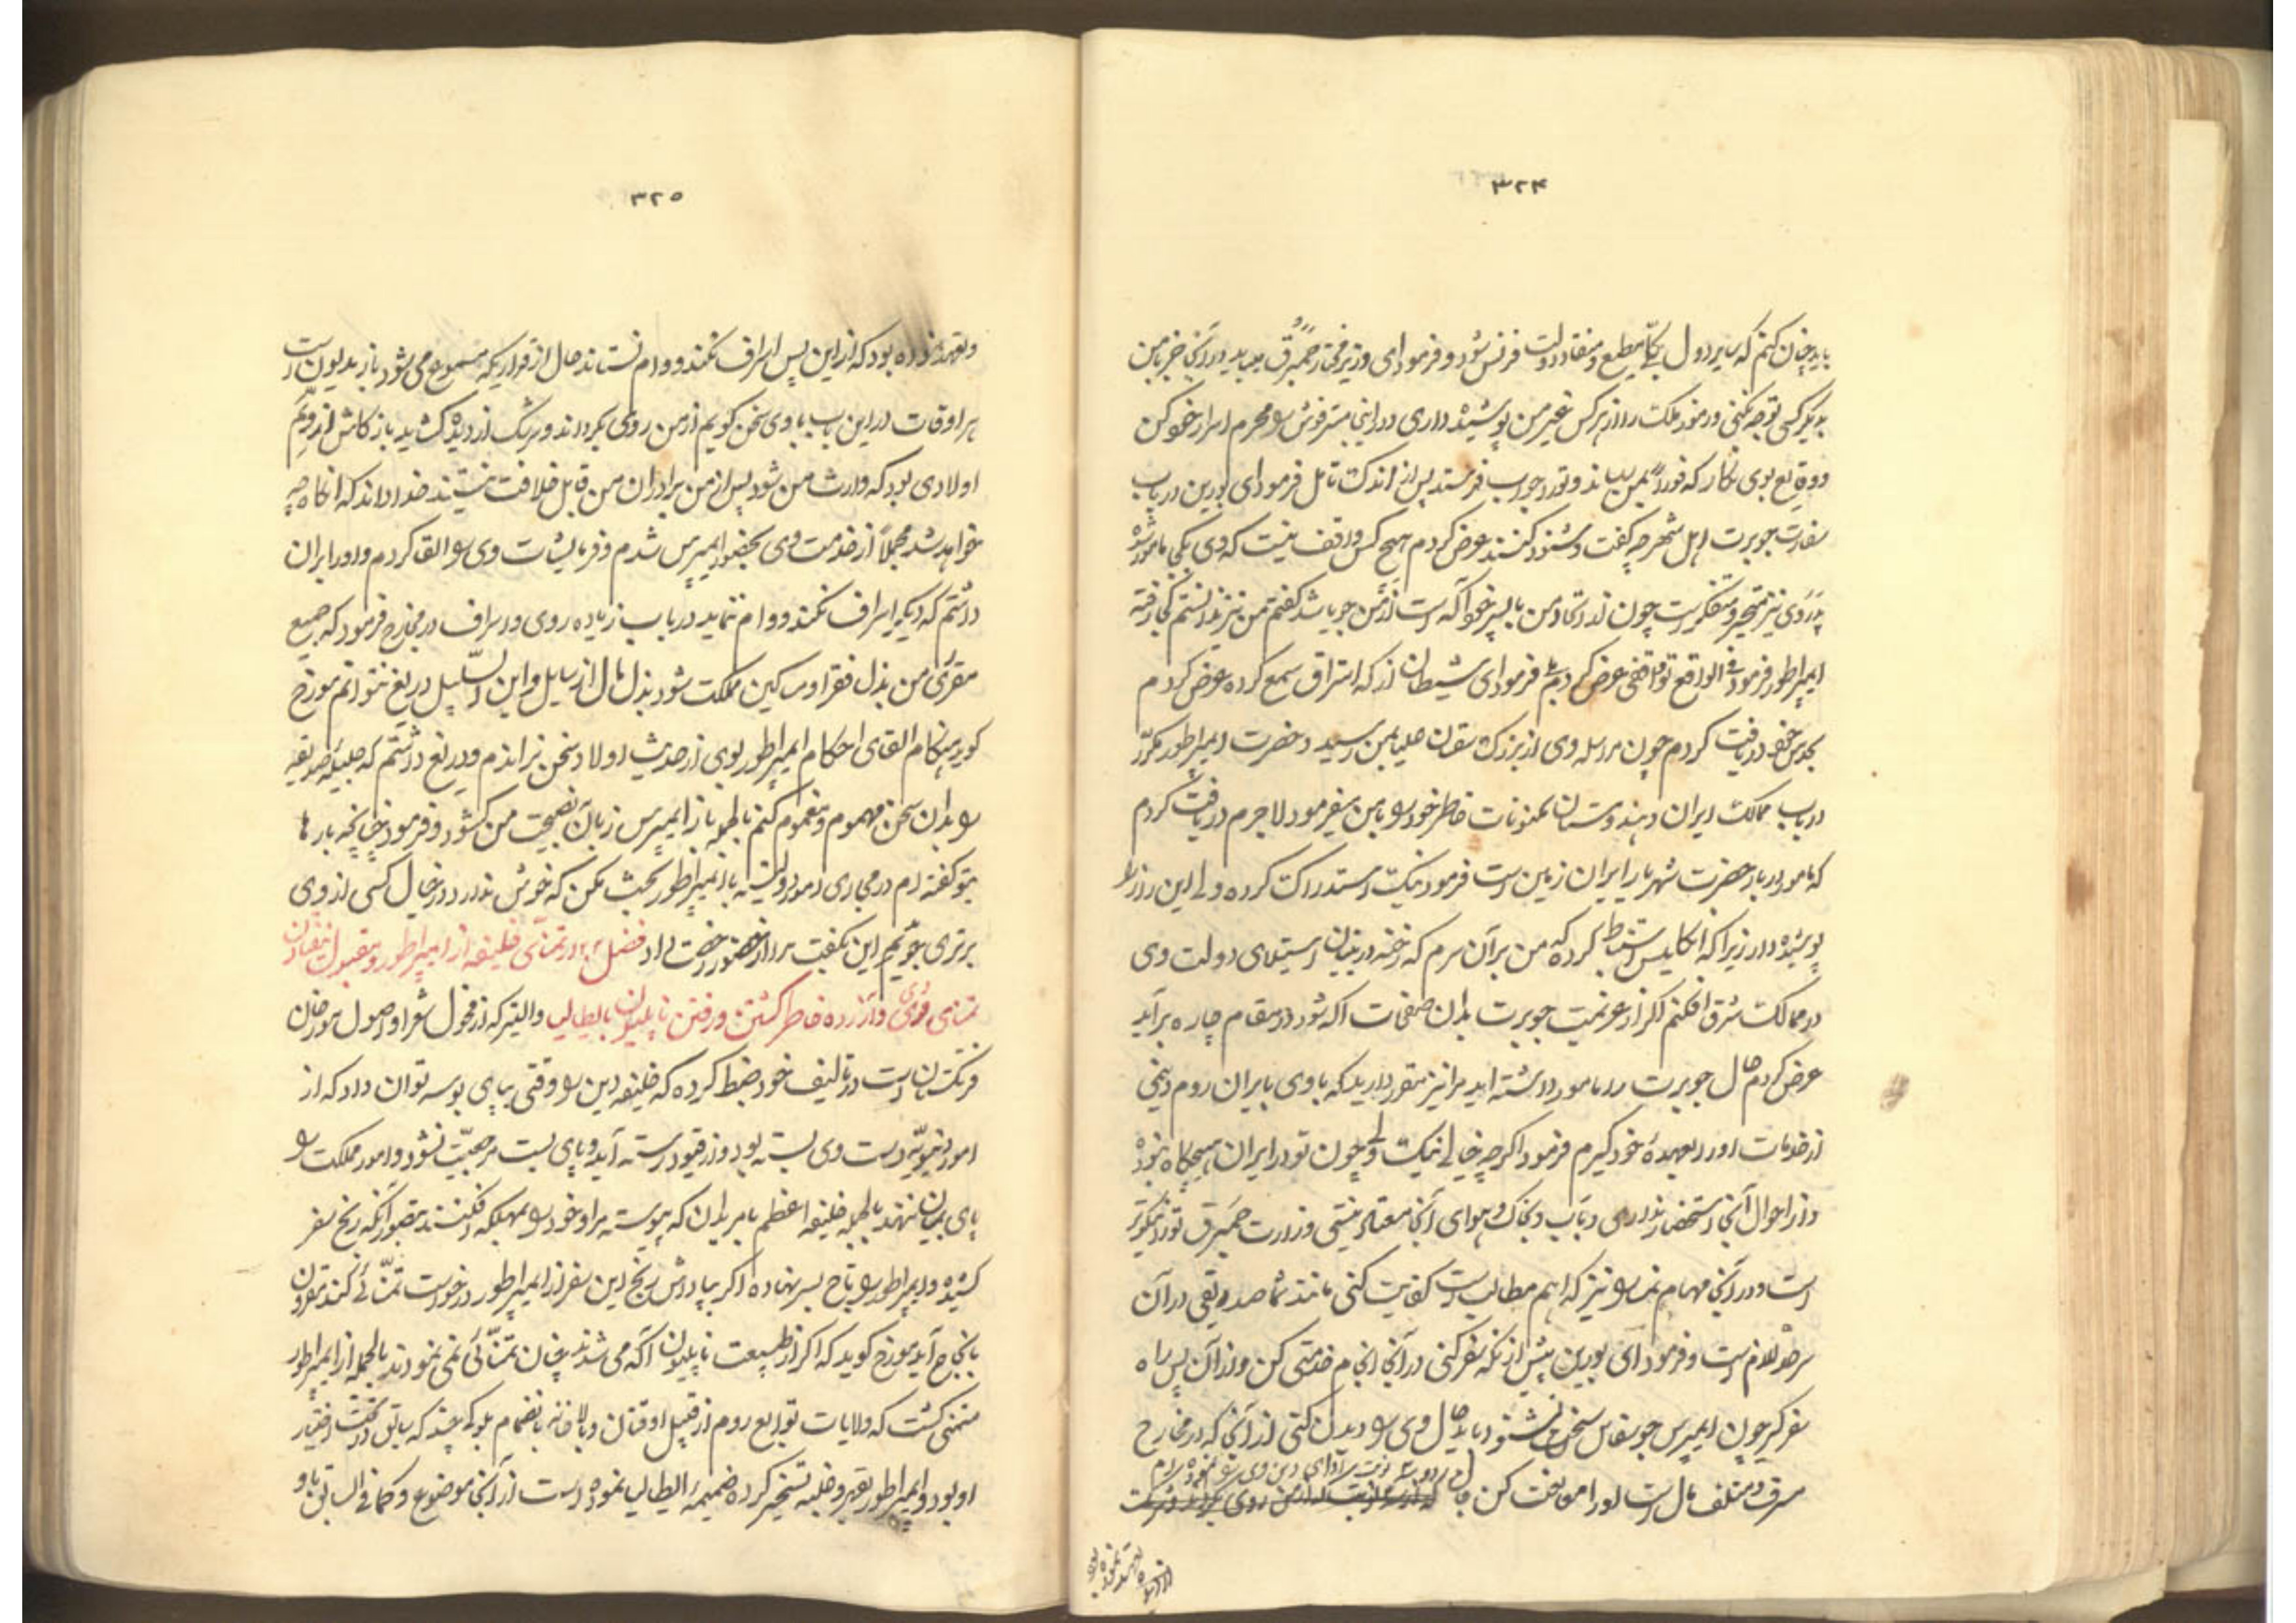 ۳۲۴
باید چنان کنم که سایر دول یکایک مطیع و منقاد دولت فرنس شود و فرمود ای وزیر مختار حمبرق بباید در آنجا جز بامن
بدیگر کسی توجه نکنی و رموز مملکت را از هر کس غیر من پوشیده داری و در اینجا مسترفوش را محرم اسرار خود کن
و وقایع بوی نگار که فوراً بمن رساند و تو را جواب فرستد پس از اندک تأمل فرمود ای بورین در باب
سفارت جوبرت اهل شهر چه گفت و شنود کنند عرض کردم هیچ کس واقف نیست که وی بکجا مأمور شده
پدر وی نیز متحیر و متفکر است چون از اتحاد من با پسر خود آگه است از من جویا شد گفتم من نیز ندانستم کجا رفته
ایمپراطور فرمود فی الواقع تو واقفی عرض کردم بلی فرمود ای شیطان از که استراق سمع کرده عرض کردم
بحدس خود دریافت کردم چون مراسله وی از بزرگ سقان علیا بمن رسید و حضرت ایمپراطور مکرر
در باب ممالک ایران و هندوستان مکنونات خاطر خود را با من میفرمود لاجرم دریافت کردم
که مامور دربار حضرت شهریار ایران زمین است فرمود نیک استدراک کرده ولی این راز را
پوشیده دار زیرا که انگلیس استنباط کرده که من بر آن سرم که رخنه در بنیان استیلای دولت وی
در ممالک شرق افکنم اگر از عزیمت جوبرت بدان صفحات آگه شود در مقام چاره برآید
عرض کردم حال جوبرت را مامور داشته اید مرا نیز مقرر دارید که با وی بایران روم و نیمی
از خدمات او را بعهده خود گیرم فرمود اگرچه خیالی نیک ولی چون تو در ایران هیچگاه نبوده
و از احوال آنجا استحضار نداری و بآب و خاک و هوای آنجا معتاد نیستی وزارت حمبرق تو را نیکوتر
است و در آنجا مهام نمسا را نیز که اهم مطالب است کفایت کنی مانند شما صدیقی در آن
سرحد لازم است و فرمود ای بورین پیش از آنکه سفر کنی در آنجا انجام خدمتی کن و از آن پس راه
سفر گیر چون ایمپرس جوسفاین سخن شنود باید حال وی را دیدن کنی از آنجا که در مخارج
سرف و متلف مال است او را موعظت کن
۳۲۵
و تعهد نموده بود که از این پس اسراف نکند و وام نستاند حال از قراریکه مسموع می شود باز مدیون است
هر اوقات در این باب با وی سخن گویم از من روی بگرداند و سرشک از دیده گشاید باز کاش از ویم
اولادی بود که وارث من شود پس از من برادران من قابل خلافت نیستند خدا داند که آنگاه چه
خواهد شد مجملاً از خدمت وی بحضور ایمپرس شدم و فرمایشات وی را القا کردم و او را بر آن
داشتم که دیگر اسراف نکند و وام ننماید در باب زیاده روی و اسراف در مخارج فرمود که جمیع
مقرری من بذل فقرا و مساکین مملکت شود بذل مال از سایل و ابن السبیل دریغ نتوانم مورخ
گوید هنگام القای احکام ایمپراطور بوی از حدیث اولاد سخن نراندم و دریغ داشتم که جلیله صدیقه
را بدان سخن مهموم و مغموم کنم بالجمله باز ایمپرس زبان بنصیحت من گشود و فرمود چنانچه بارها
بتو گفته ام در مجاری امور دولتیه با ایمپراطور بحث مکن که خوش ندارد در خیال کسی از وی
برتری جوید این بگفت مرا از حضور رخصت داد فصل در تمنای خلیفه از ایمپراطور و مقبول نیفتادن
تمنای وی و آزرده خاطر گشتن و رفتن ناپلیون بایطالیا والتیر که از فحول شعرا و اصول مورخان
فرنگستان است در تالیف خود ضبط کرده که خلیفه دین را وقتی بپای بوسه توان داد که از
امور دنیویه دست وی بسته بود و از قیود رسته آید و پای بست مرحبت نشود و امور مملکت را
پای بمیان ننهد بالجمله خلیفه اعظم بامر بدان که پیوسته مر او خود را بمهلکه افکنند بتصور آنکه رنج سفر
کشیده و ایمپراطور را تاج بسر نهاده اگر بپاداش رنج این سفر از ایمپراطور درخواست تمنائی کند مقرون
بانجاح آید مورخ گوید که اگر از طبیعت ناپلیون آگه می شدند چنان تمنائی نمی نمودند بالجمله از ایمپراطور
متمنی گشت که ولایات توابع روم از قبیل اوقنان و بلاخانه بانضمام بلوکی چند که سابق در تحت اختیار
او بود و ایمپراطور بقهر و غلبه تسخیر کرده ضمیمه ایطالیا نموده است از آنجا موضوع و کما فی السابق باو